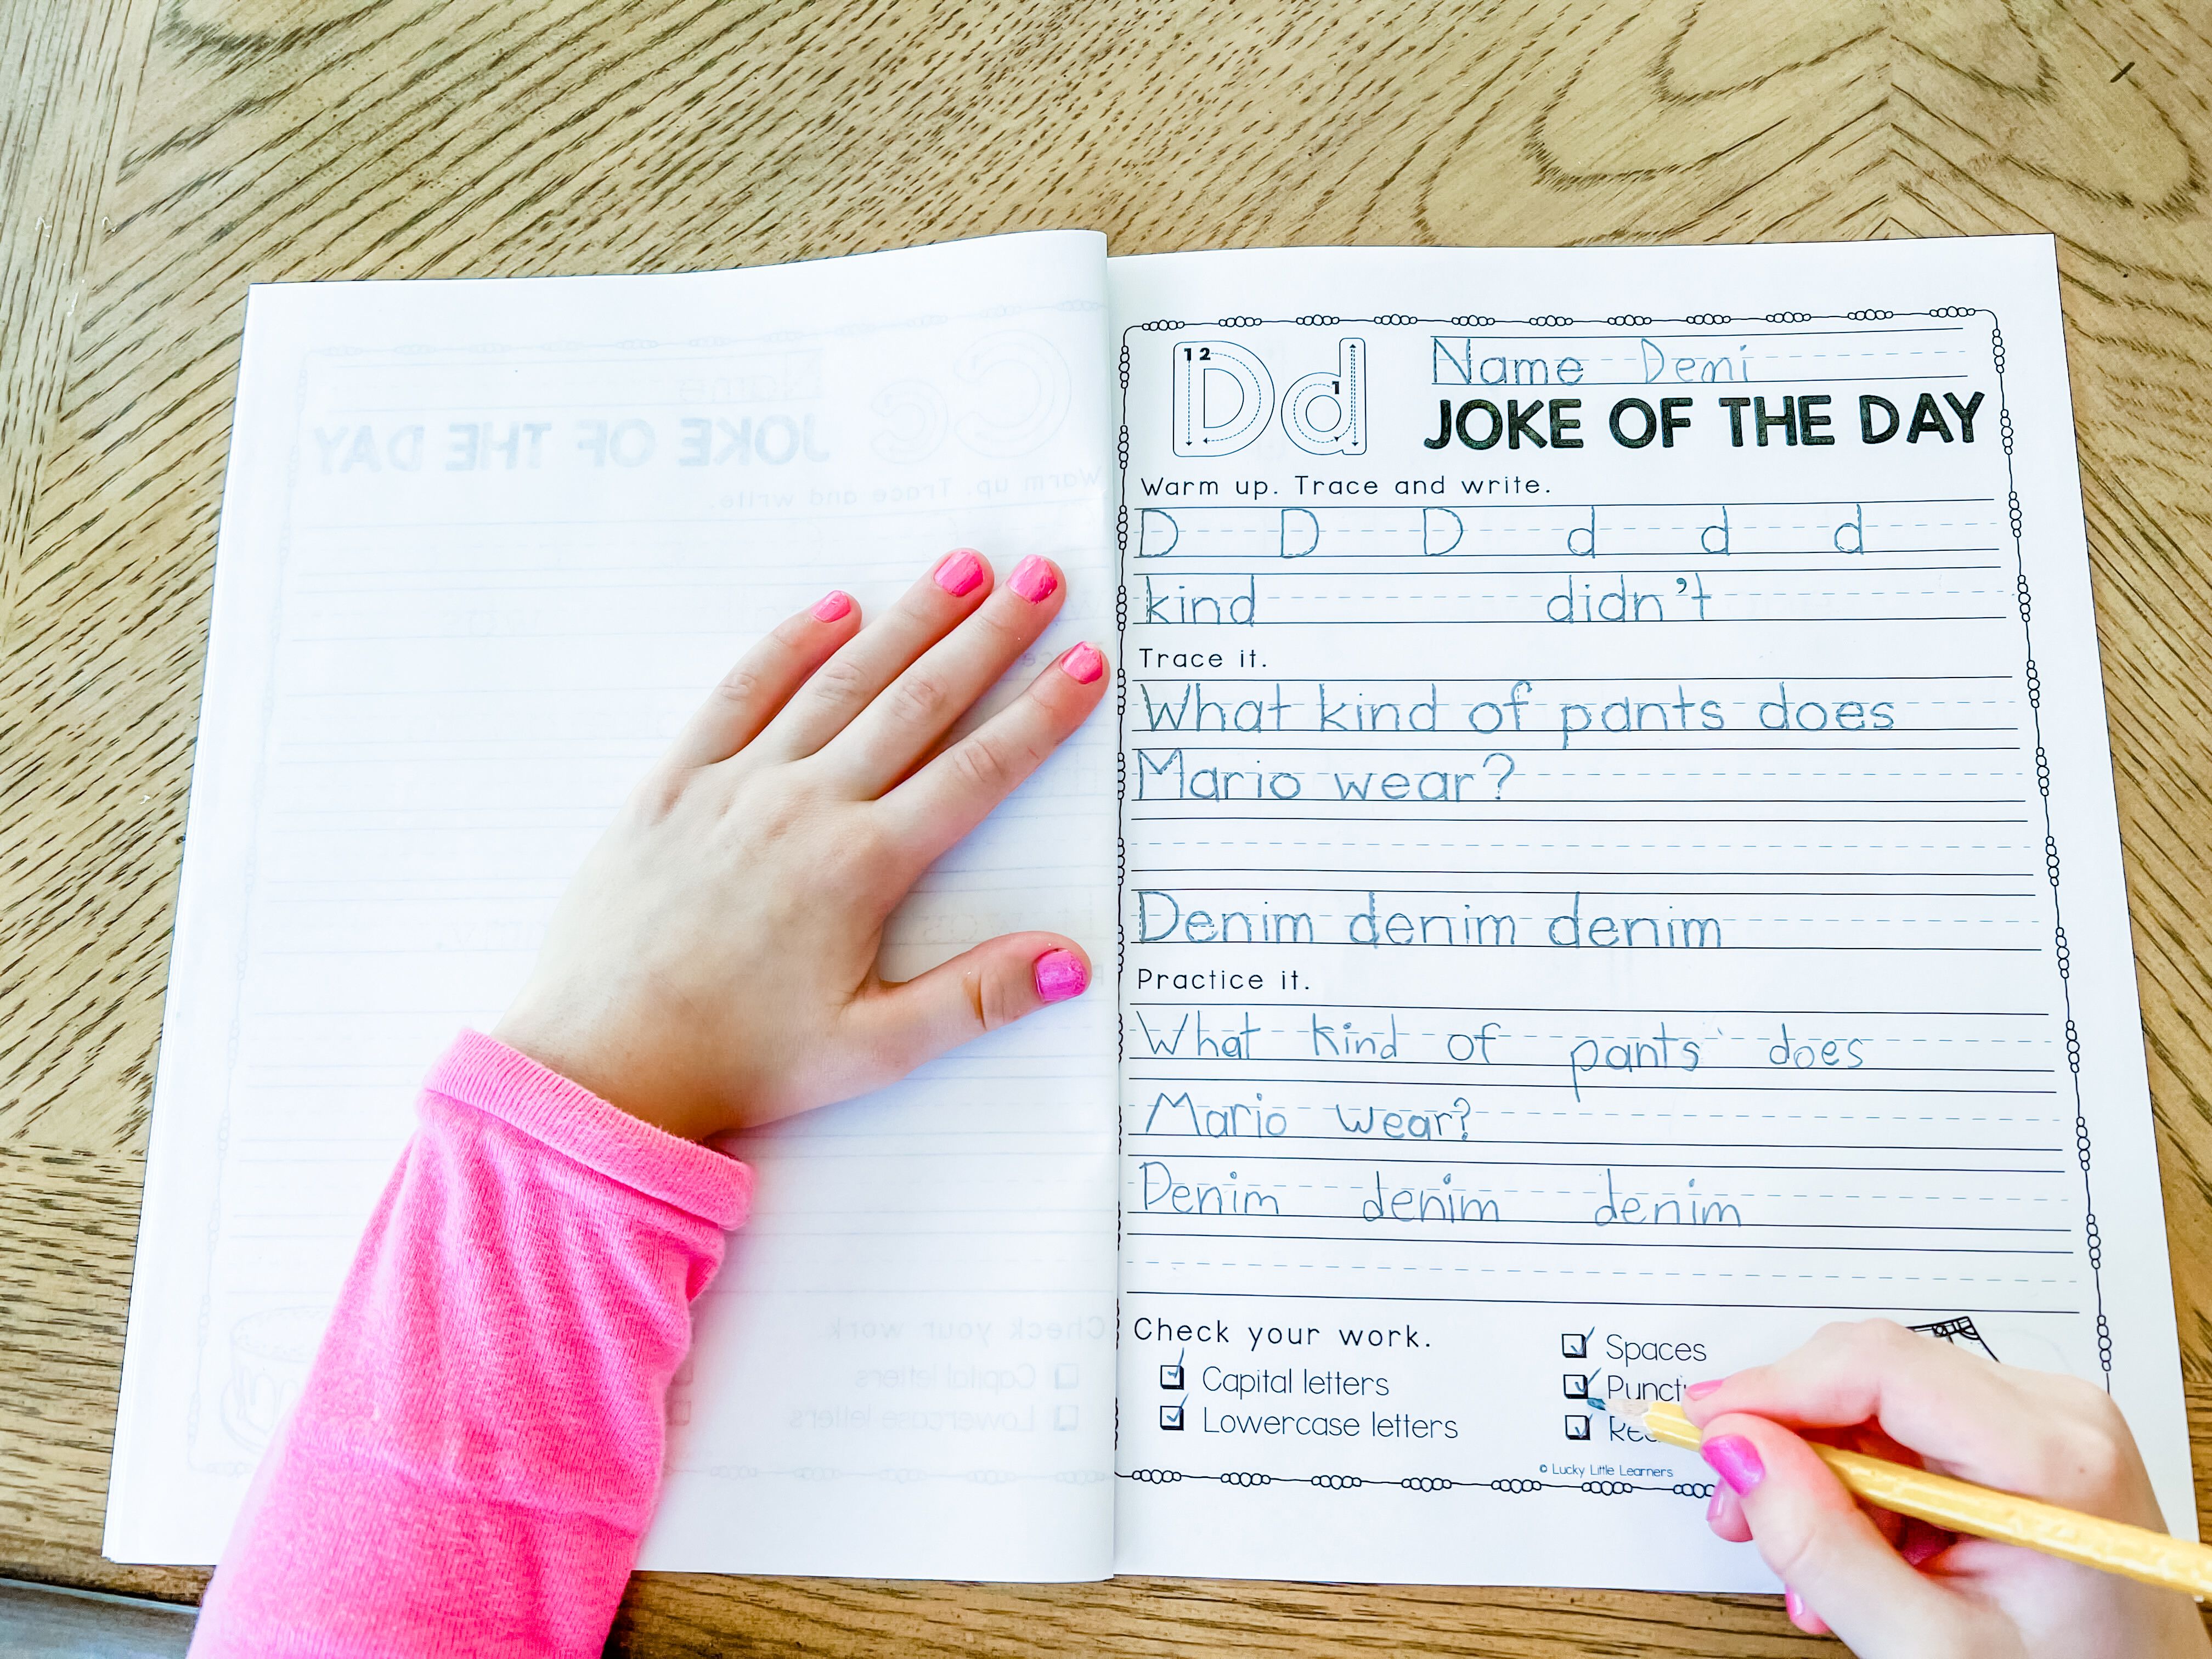 Dd
Name Deni
JOKE OF THE DAY
Warm up. Trace and write.
D D D d d d
kind didn't
Trace it.
What kind of pants does
Mario wear?
Denim denim denim
Practice it.
What kind of pants does
Mario wear?
Denim denim denim
Check your work.
Spaces
Capital letters
Lowercase letters
© Lucky Little Learners